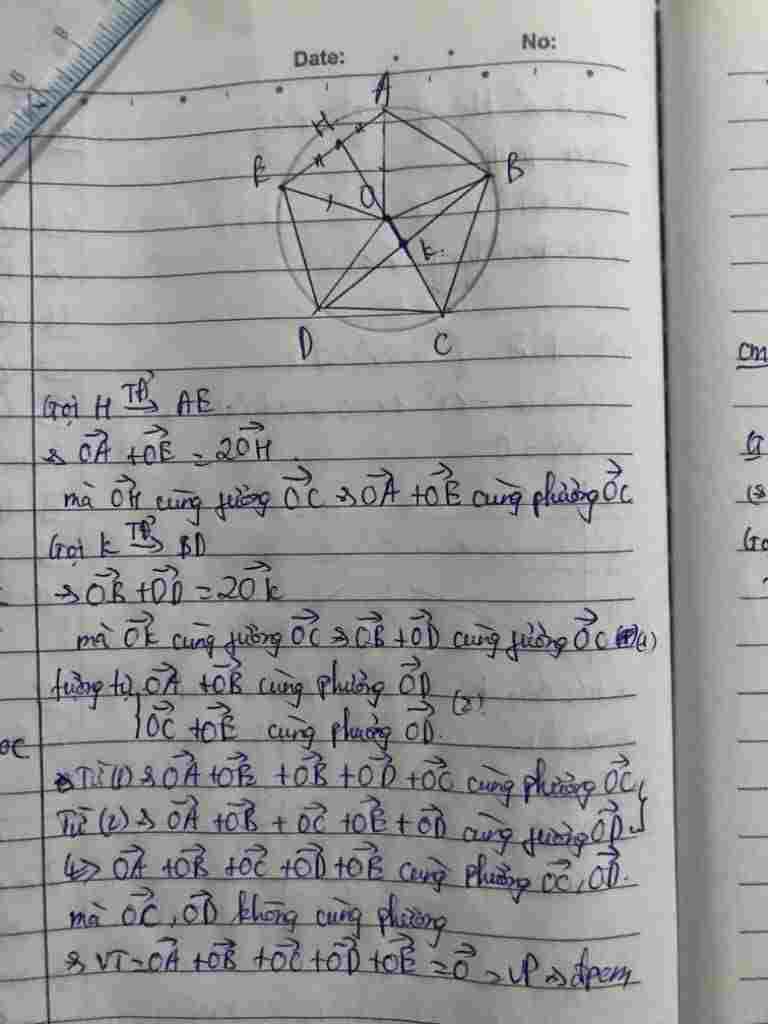 Date: No:
A
H
E B
O
K
D C
Gọi H TĐ → AE.
→ OA + OE = 2OH.
mà OH cùng phương OC → OA + OE cùng phương OC
cm
Gọi K TĐ → BD
→ OB + OD = 2OK
mà OK cùng phương OC → OB + OD cùng phương OC (1)
tương tự OA + OB cùng phương OD
OC + OE cùng phương OD. (2)
OC
Từ (1) → OA + OE + OB + OD + OC cùng phương OC
Từ (2) → OA + OB + OC + OE + OD cùng phương OD
=> OA + OB + OC + OD + OE cùng phương OC, OD.
mà OC, OD không cùng phương
→ VT = OA + OB + OC + OD + OE = O = VP → đpcm